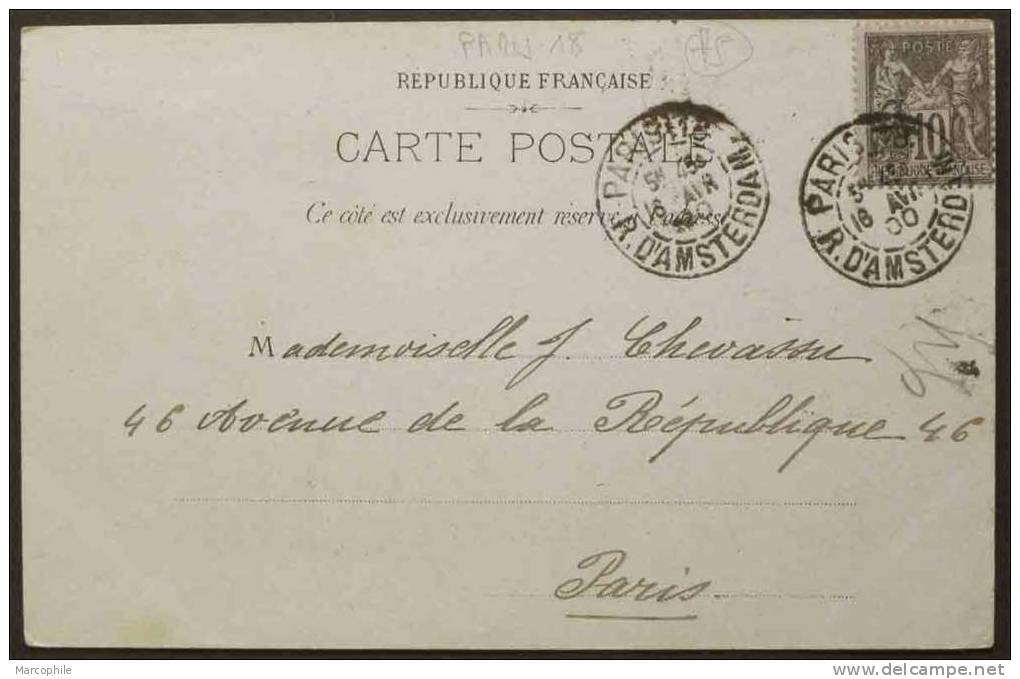 PARIS 18
POSTE
RÉPUBLIQUE FRANÇAISE
CARTE POSTALE
10
RÉPUBLIQUE FRANÇAISE
Ce côté est exclusivement réservé à l'adresse
PARIS
16 AVR 00
R. D'AMSTERDAM
PARIS
16 AVR 00
R. D'AMSTERDAM
Mademoiselle J. Chevassu
46 Avenue de la République 46
Paris
Marcophile
www.delcampe.net